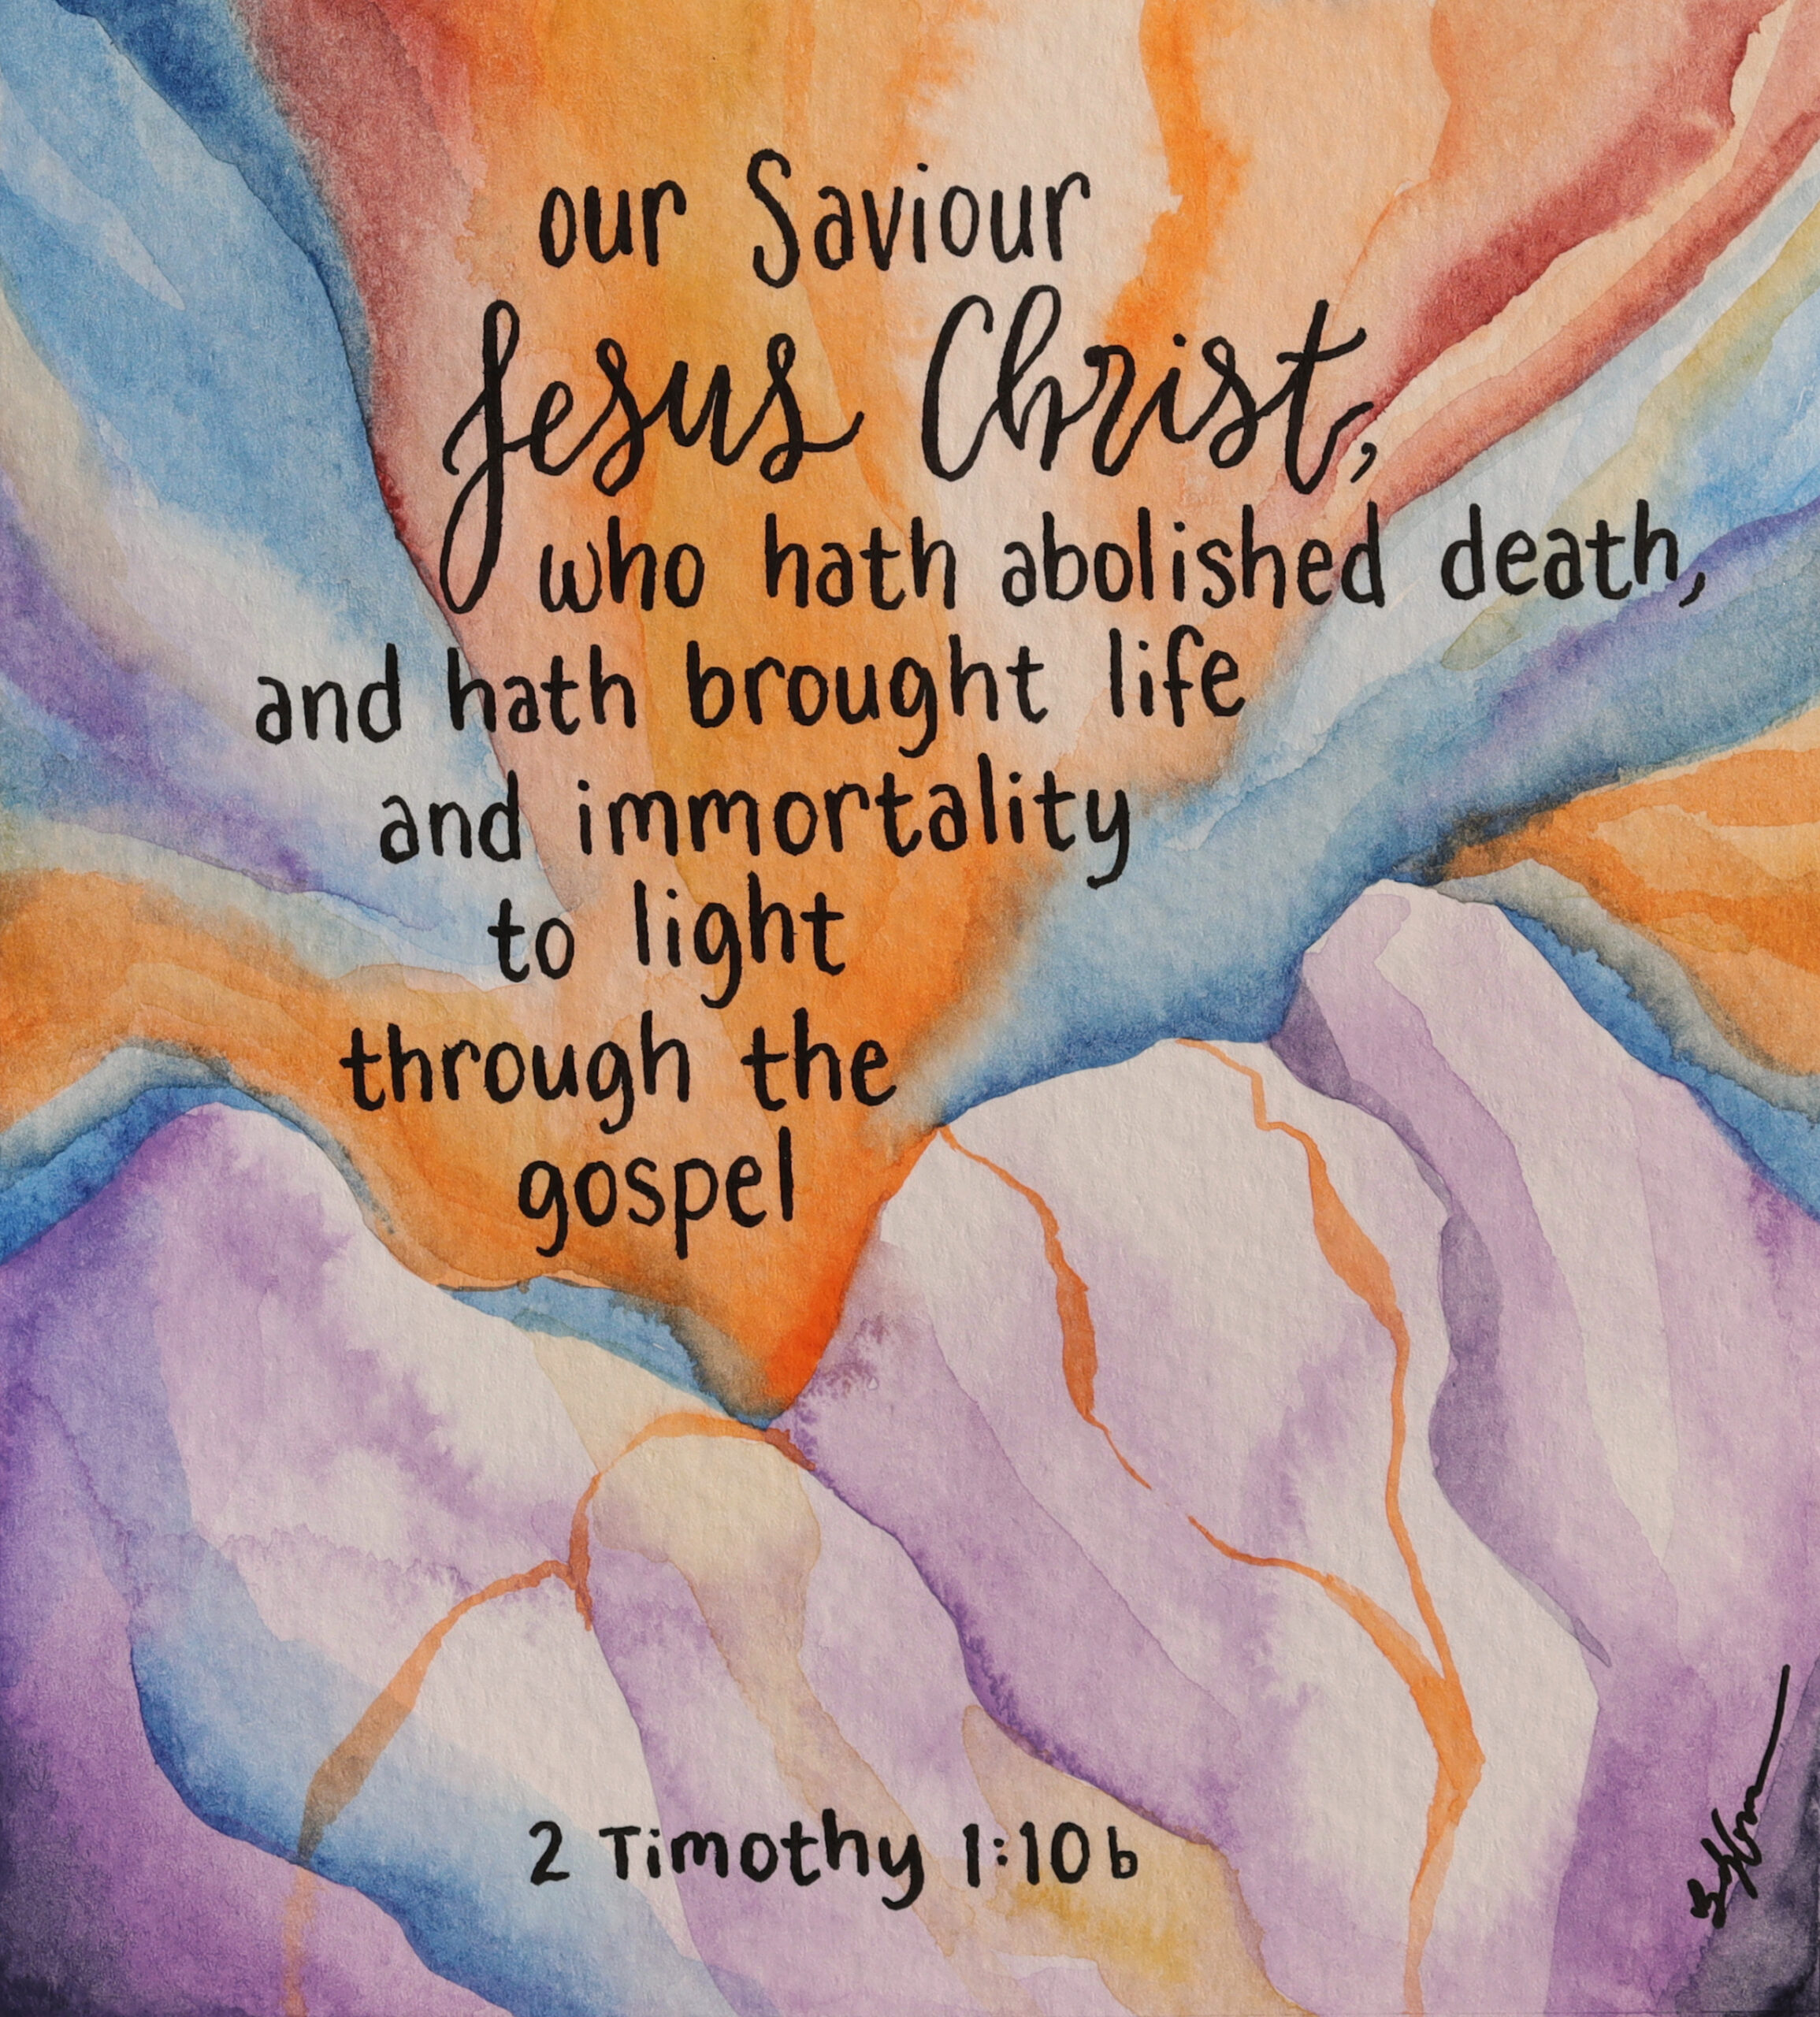 our Saviour
Jesus Christ,
who hath abolished death,
and hath brought life
and immortality
to light
through the
gospel
2 Timothy 1:10b